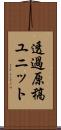 透過原稿
ユニット